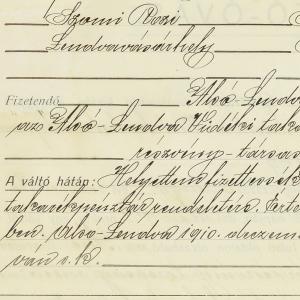 Szomi Rozi
Lendvavásárhely
Fizetendő Alsó-Lendv
az Alsó-Lendvai Vidéki taka
részvény-társas
A váltó hátán: Helyettem fizettessék
takarékpénztár rendeletére. Ért
ben. Alsó-Lendva 1910. decem
ván s.k.